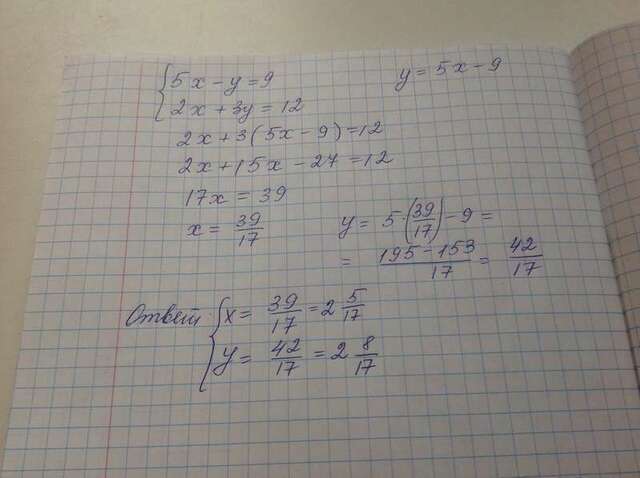 5x - y = 9
y = 5x - 9
2x + 3y = 12
2x + 3(5x - 9) = 12
2x + 15x - 27 = 12
17x = 39
x = 39/17
y = 5·(39/17) - 9 =
= (195 - 153)/17 = 42/17
Ответ x = 39/17 = 2 5/17
y = 42/17 = 2 8/17